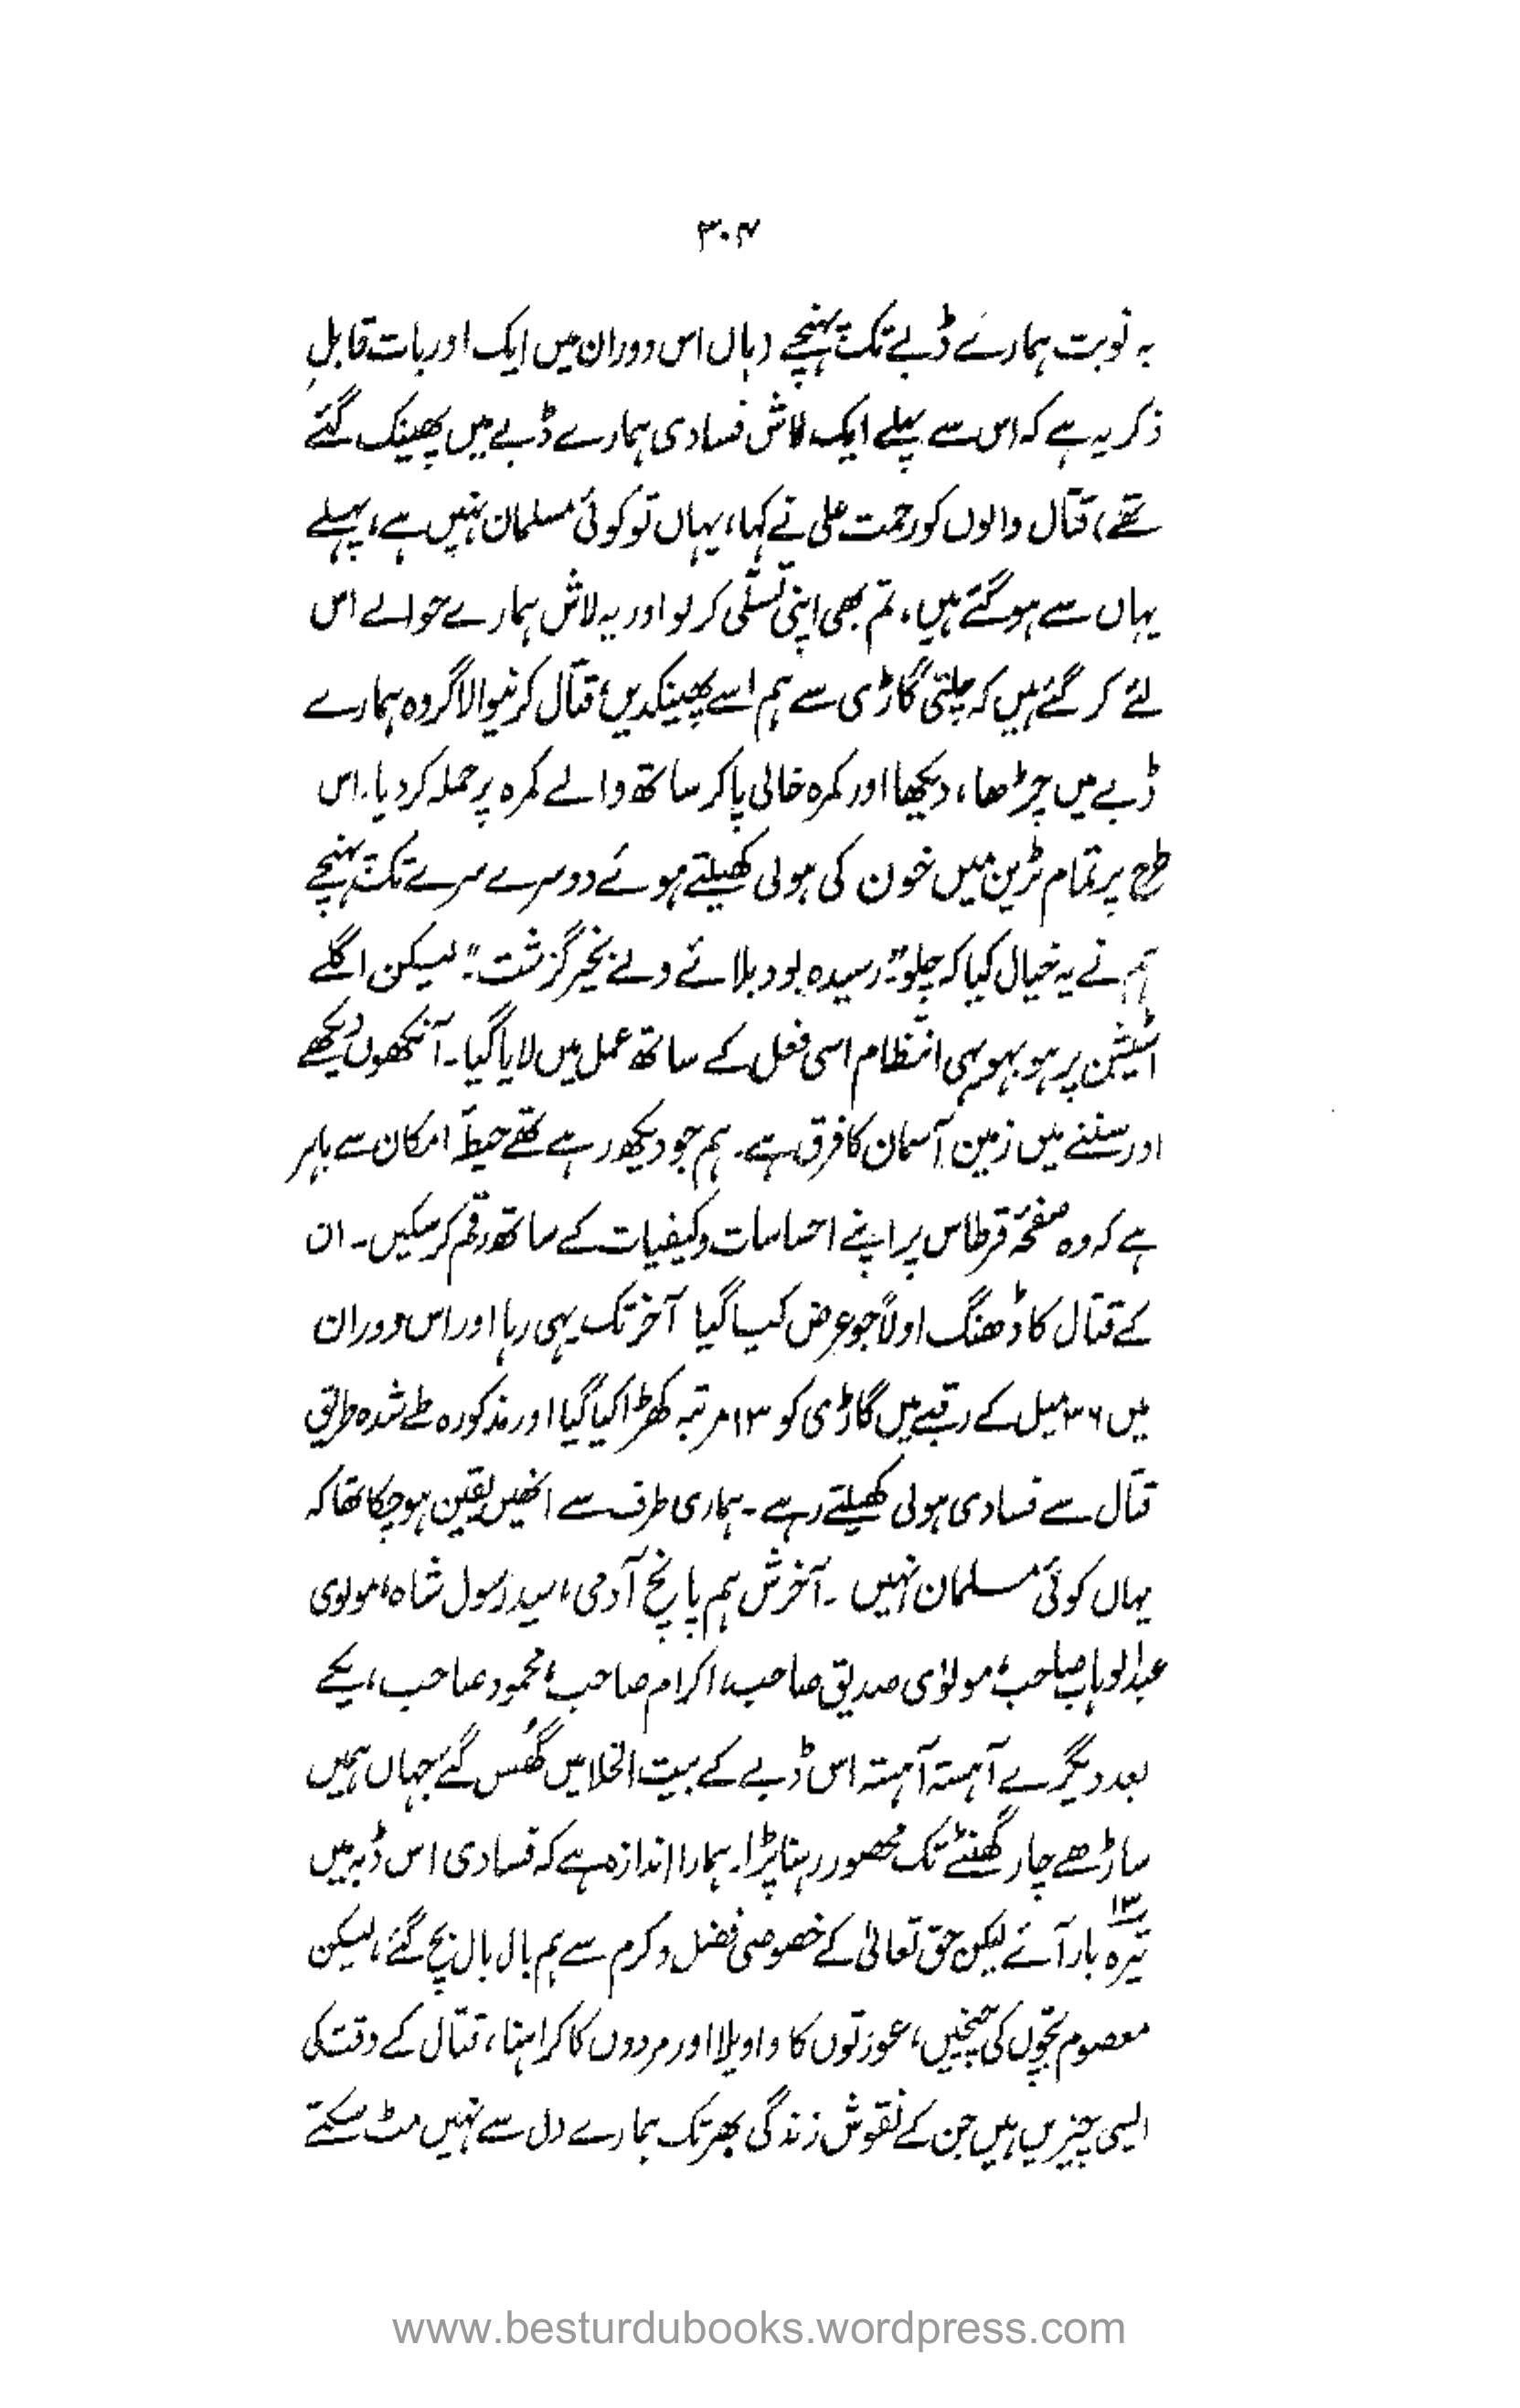 ۳۰۴
بہ نوبت ہمارے ڈبے تک پہنچے (ہاں اس دوران میں ایک اور بات قابلِ
ذکر یہ ہے کہ اس سے پہلے ایک لاش فسادی ہمارے ڈبے میں پھینک گئے
تھے، قتال والوں کو رحمت علی نے کہا، یہاں تو کوئی مسلمان نہیں ہے، پہلے
یہاں سے ہو گئے ہیں، تم بھی اپنی تسلّی کر لو اور یہ لاش ہمارے حوالے اس
لئے کر گئے ہیں کہ چلتی گاڑی سے ہم اسے پھینکدیں، قتال کرنیوالا گروہ ہمارے
ڈبے میں چڑھا، دیکھا اور کمرہ خالی پا کر ساتھ والے کمرہ پر حملہ کر دیا۔ اس
طرح پر تمام ٹرین میں خون کی ہولی کھیلتے ہوئے دوسرے سرے تک پہنچے
ہم نے یہ خیال کیا کہ چلو "رسیدہ بود بلائے ولے بخیر گزشت" لیکن اگلے
اسٹیشن پر ہو بہو یہی انتظام اسی فعل کے ساتھ عمل میں لایا گیا۔ آنکھوں دیکھے
اور سننے میں زمین آسمان کا فرق ہے۔ ہم جو دیکھ رہے تھے حیطۂ امکان سے باہر
ہے کہ وہ صفحۂ قرطاس پر اپنے احساسات و کیفیات کے ساتھ رقم کر سکیں۔ ان
کے قتال کا ڈھنگ اولاً جو عرض کیا گیا آخر تک یہی رہا اور اس دوران
میں ۳۶ میل کے رقبے میں گاڑی کو ۱۳ مرتبہ کھڑا کیا گیا اور مذکورہ طے شدہ طریق
قتال سے فسادی ہولی کھیلتے رہے۔ ہماری طرف سے انھیں یقین ہو چکا تھا کہ
یہاں کوئی مسلمان نہیں۔ آخرش ہم پانچ آدمی، سید رسول شاہ، مولوی
عبدالوہاب صاحب، مولوی صدیق صاحب، اکرام صاحب، محمود صاحب، یکے
بعد دیگرے آہستہ آہستہ اس ڈبے کے بیت الخلا میں گُھس گئے جہاں ہمیں
ساڑھے چار گھنٹے تک محصور رہنا پڑا۔ ہمارا اندازہ ہے کہ فسادی اس ڈبہ میں
۱۳
تیرہ بار آئے لیکن حق تعالیٰ کے خصوصی فضل و کرم سے ہم بال بال بچ گئے، لیکن
معصوم بچّوں کی چیخیں، عورتوں کا واویلا اور مردوں کا کراہنا، قتال کے وقت کی
ایسی چیزیں ہیں جن کے نقوش زندگی بھر تک ہمارے دل سے نہیں مٹ سکتے
www.besturdubooks.wordpress.com